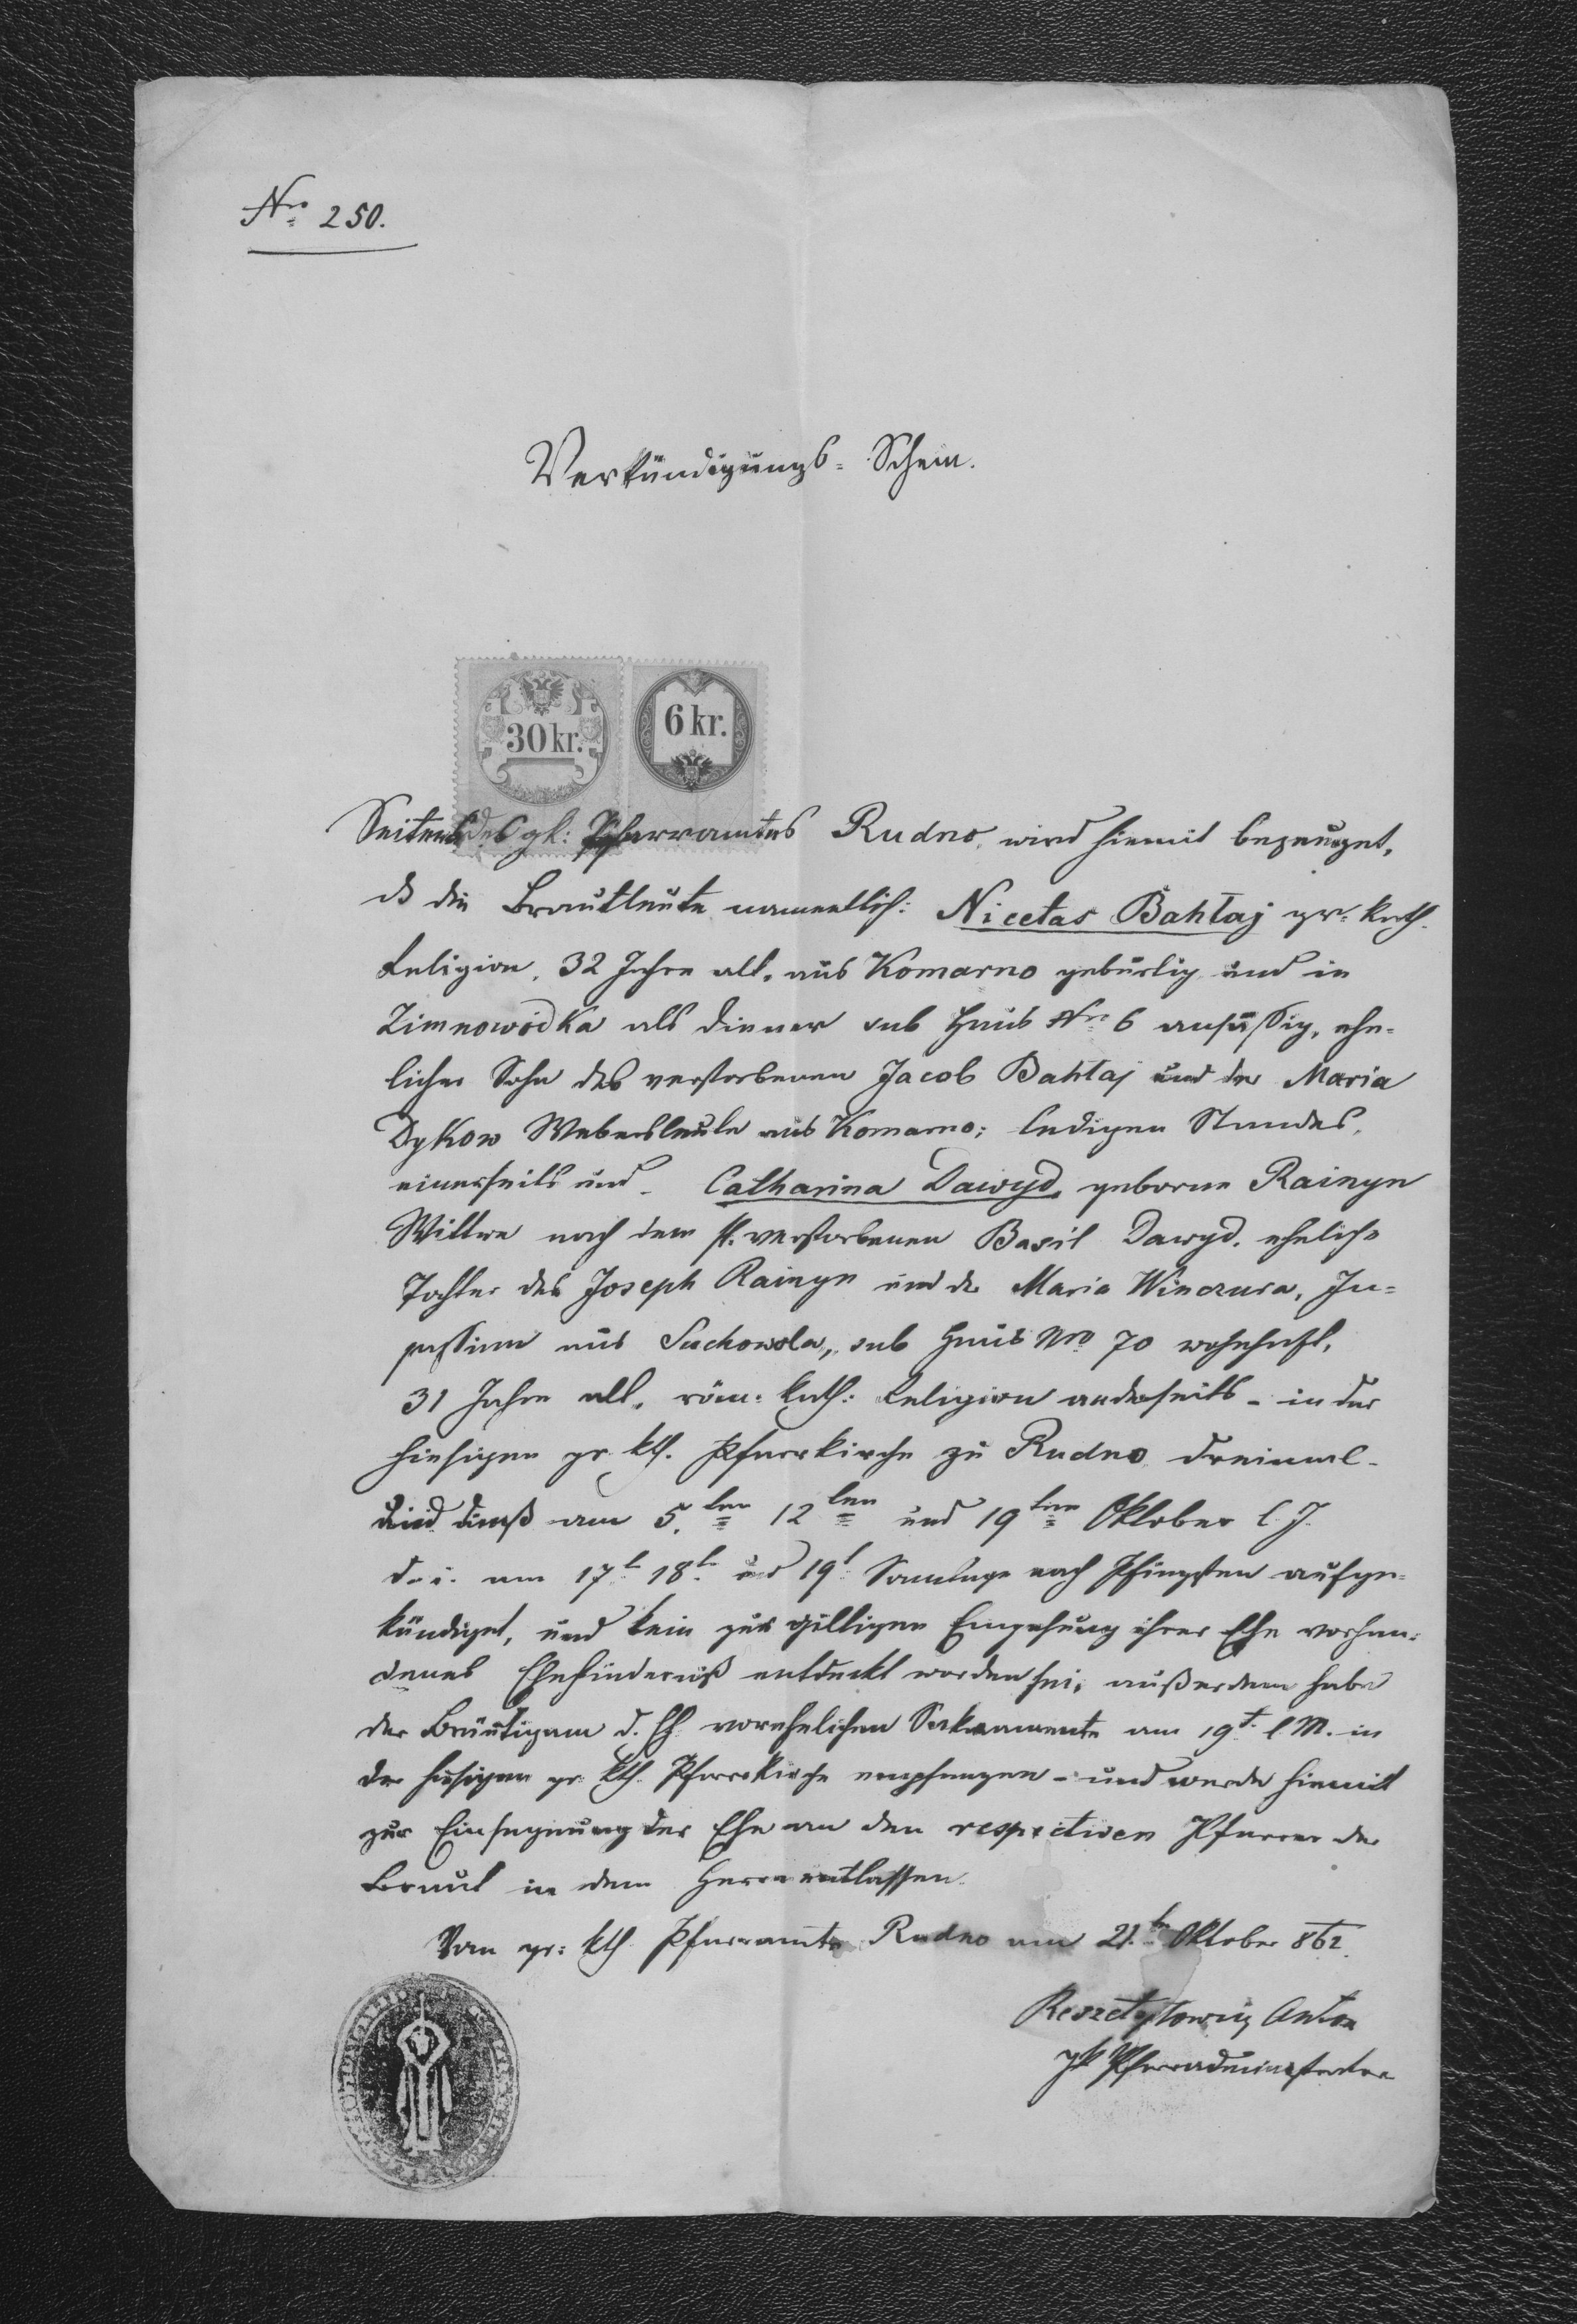 Nro 250.
Verkündigungs-Schein.
30 kr.
6 kr.
Seitens des gk: Pfarramtes Rudno wird hiemit bezeuget,
daß die Brautleute namentlich: Nicetas Bahtaj gr. kath.
Religion, 32 Jahre alt, aus Komarno gebürtig und in
Zimnowódka als Diener sub Haus Nro 6 ansäßig, ehe-
licher Sohn des verstorbenen Jacob Bahtaj und der Maria
Dykow Webersleute aus Komarno; ledigen Standes,
einerseits und Catharina Dawyd, geborne Rainyn
Wittwe nach dem verstorbenen Basil Dawyd, eheliche
Tochter des Joseph Rainyn und der Maria Winczura, In-
saßinn aus Suchowola, sub Haus Nro 70 wohnhaft,
31 Jahre alt, röm: kath: Religion anderseits - in der
hiesigen gr. kth. Pfarrkirche zu Rudno dreimal
am 5.ten 12ten und 19ten Oktober l. J.
d. i. am 17t. 18t. und 19t. Sonntage nach Pfingsten aufge-
kündiget, und kein zur gültigen Eingehung ihrer Ehe vorhan-
denes Ehehinderniß entdeckt worden sei; außerdem habe
der Bräutigam d. hh. vorehelichen Sakramente am 19t. l. M. in
der hiesigen gr. kth. Pfarrkirche empfangen - und werde hiemit
zur Einsegnung der Ehe an den respectiven Pfarrer der
Braut in dem Herrn entlassen.
Vom gr: kth. Pfarramte Rudno am 21.ten Oktober 862.
Anton
gk Pfarradministrator